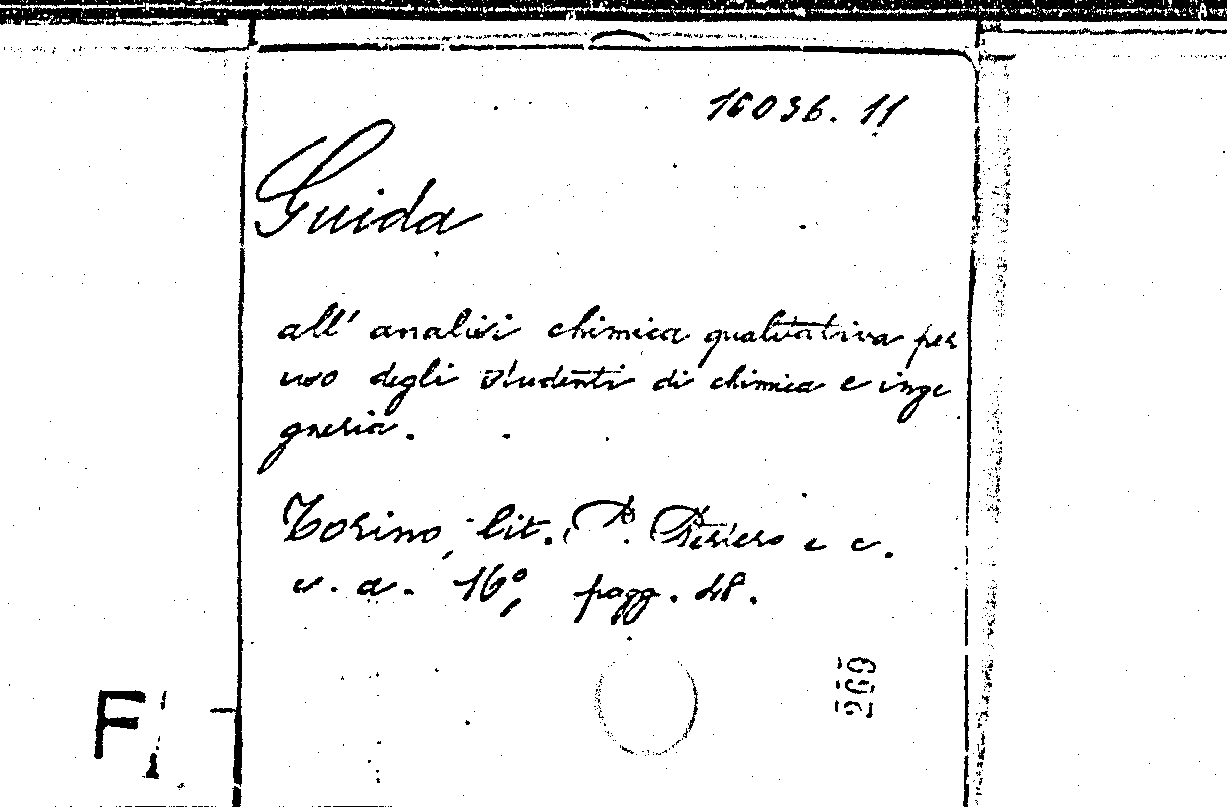 16036. 11
Guida
all' analisi chimica qualitativa per
uso degli studenti di chimica e inge
gneria.
Torino, lit. P. Periero e c.
s. a. 16°, pagg. 48.
269
F